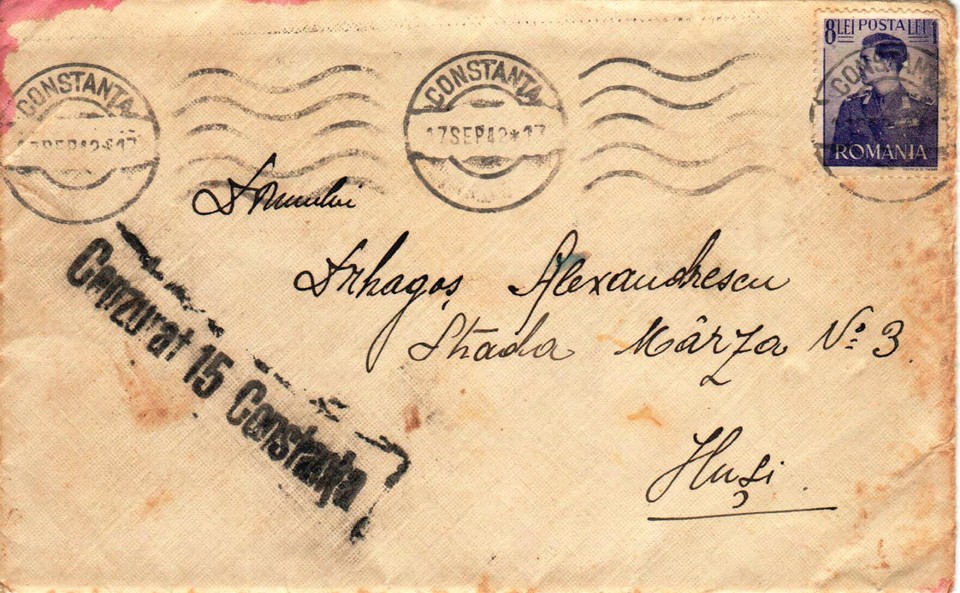 CONSTANȚA
17SEP42*17
CONSTANȚA
17SEP42*17
8 LEI POSTA LEI 1
CONSTANȚA
ROMANIA
Domnului
Dragoș Alexandrescu
Strada Mârza No: 3
Huși.
Cenzurat 15 Constanța